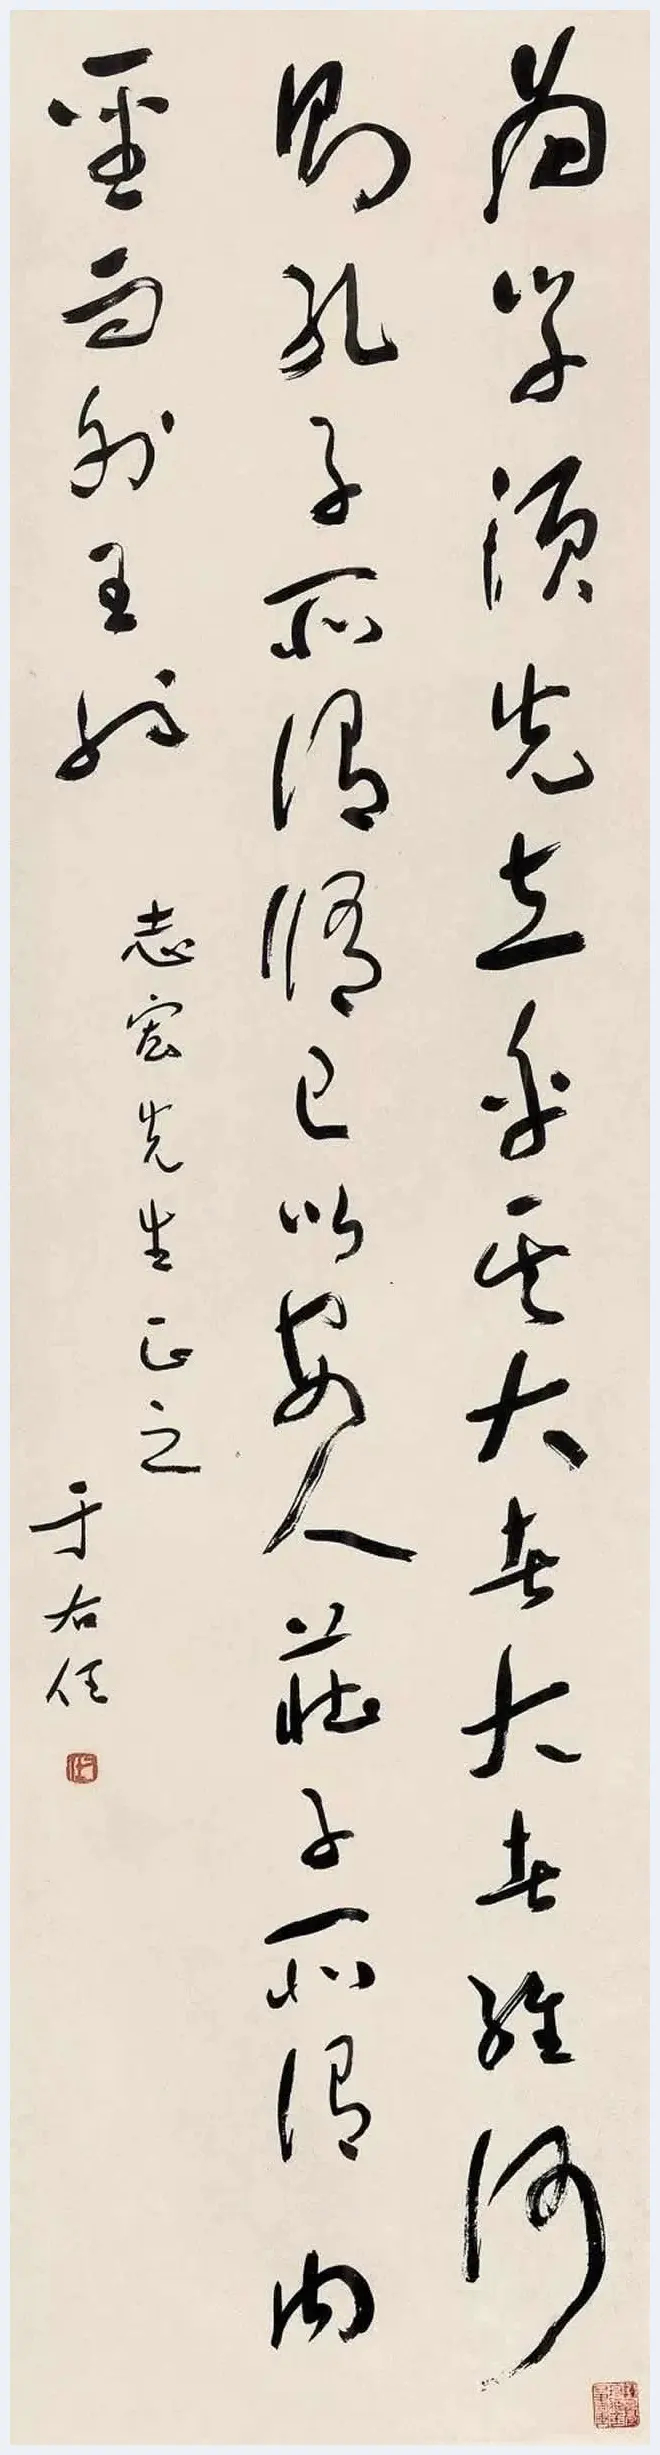 為學須先立乎其大者大者維何
則孔子所謂修己以安人莊子所謂內
聖而外王
志宏先生正之
于右任